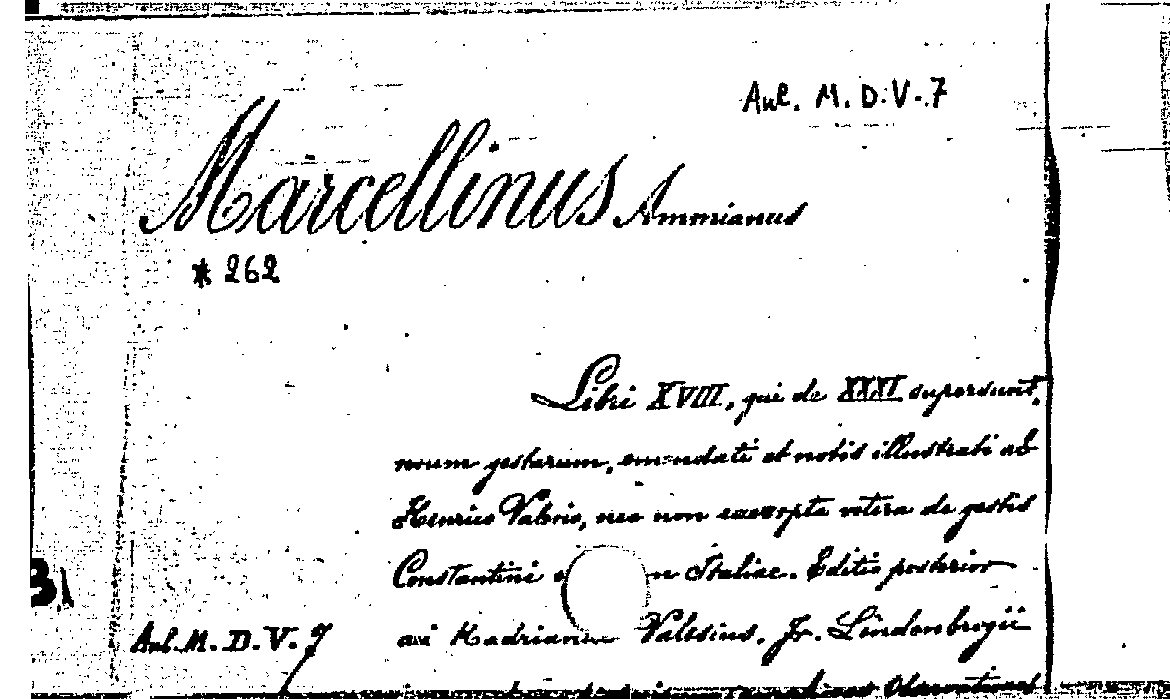 Aul. M. D. V. 7
Marcellinus Ammianus
* 262
Libri XVIII, qui de XXXI supersunt,
rerum gestarum, emendati et notis illustrati ab
Henrico Valesio, nec non excerpta vetera de gestis
Constantini n Italiae. Editio posterior
cui Hadrianus Valesius, Fr. Lindenbrogii
Aul. M. D. V. 7
observationes